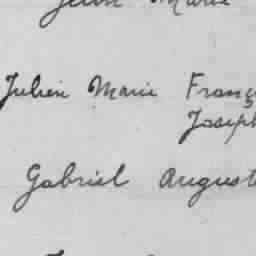 Jean Marie
Julien Marie Franç
Joseph
Gabriel Auguste